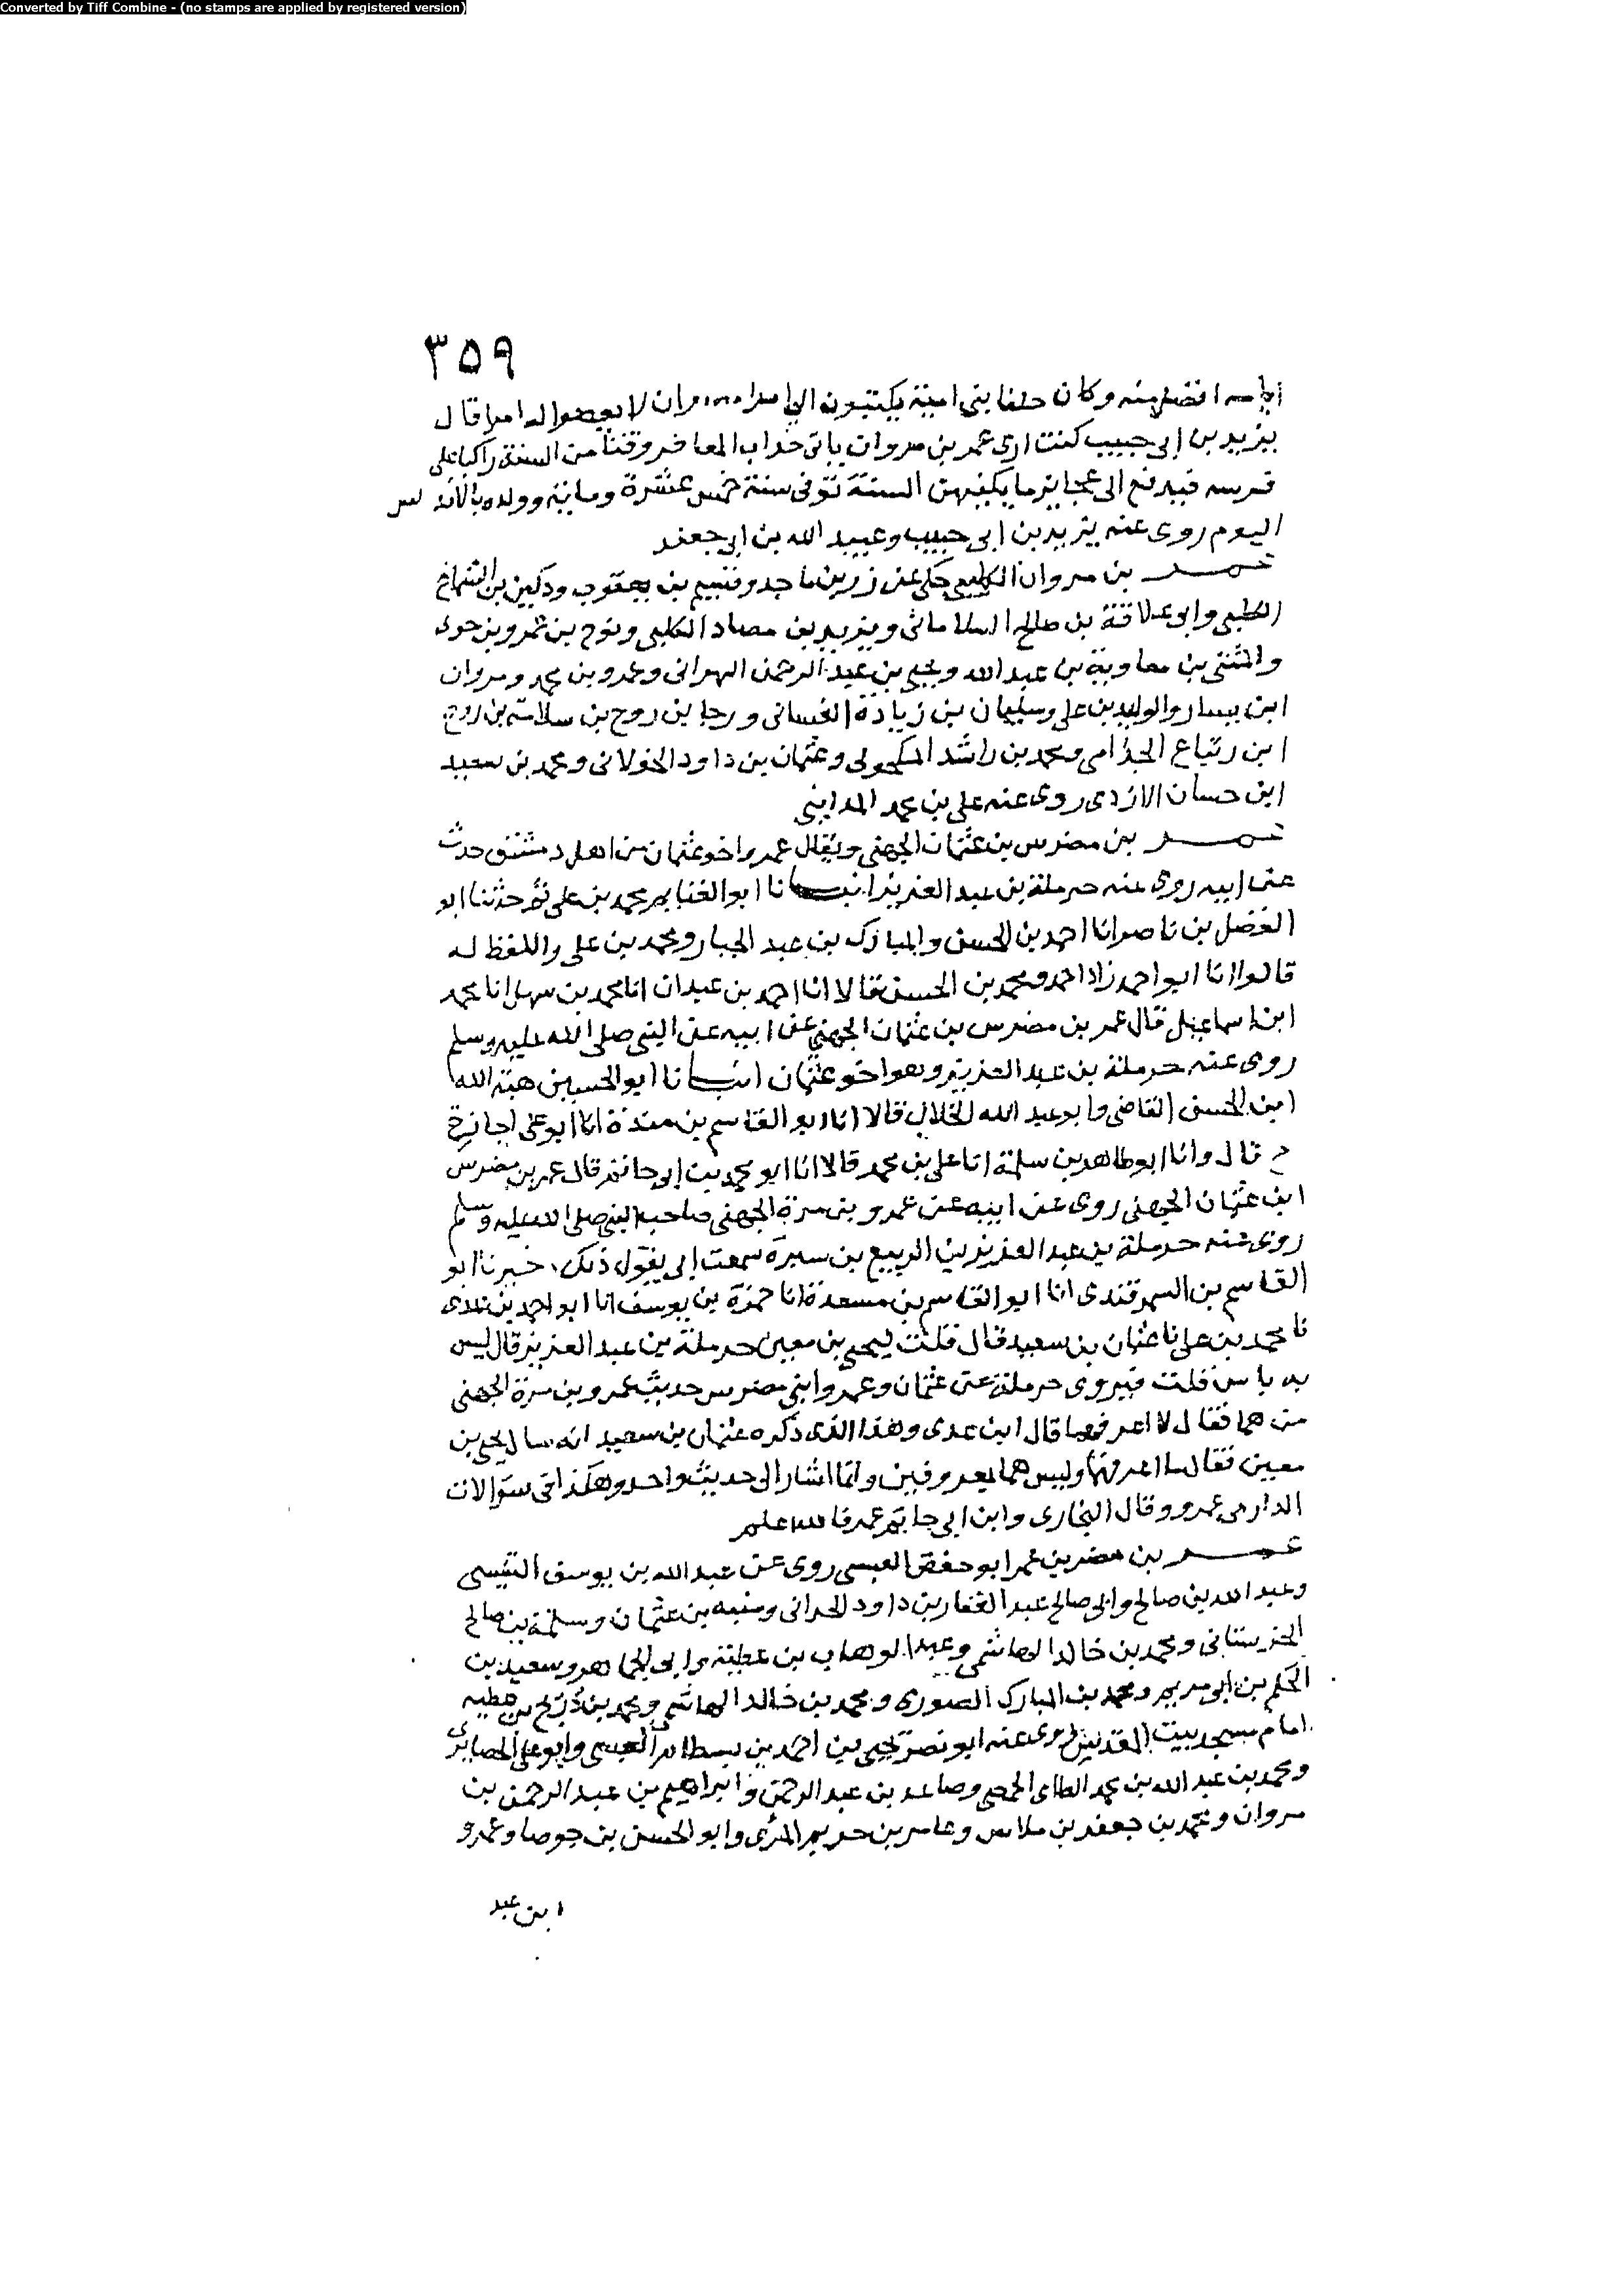 Converted by Tiff Combine - (no stamps are applied by registered version)
٣٥٩
افضل منه وكان خلفا بنى امية يكتبون الى امرا ان لا يعصوا له امرا قال
يزيد بن ابى حبيب كنت ارى عمر بن مروان ياتى خراب المعافر وقتا من السنة راكبا على
فرسه فيدفع الى عجايز ما يكفيهن السنة توفى سنة خمس عشرة وماية وولده بالاندلس
اليوم روى عنه يزيد بن ابى حبيب وعبيد الله بن ابى جعفر
عمر بن مروان الكلبى حكى عن زرين ماجد وقسيم بن يعقوب ودكين بن الشماخ
الكلبى وابو علاقة بن صالح السلامانى ويزيد بن مصاد الكلبى ونوح بن عمرو بن حوى
والمثنى بن معاوية بن عبد الله ويحيى بن عبد الرحمن البهرانى وعمرو بن محمد ومروان
ابن يسار والوليد بن على وسليمان بن زيادة الغسانى ورجا بن روح بن سلامة بن روح
ابن زنباع الجذامى ومحمد بن راشد المكحولى وعثمان بن داود الخولانى ومحمد بن سعيد
ابن حسان الازدى روى عنه على بن محمد المداينى
عمر بن مضرس بن عثمان الجهنى ويقال عمرو اخو عثمان من اهل دمشق حدث
عن ابيه روى عنه حرملة بن عبد العزيز انبانا ابو الغنايم محمد بن على ثم حدثنا ابو
الفضل بن ناصر انا احمد بن الحسن والمبارك بن عبد الجبار ومحمد بن على واللفظ له
قالوا انا ابو احمد زاد احمد ومحمد بن الحسن قالا انا احمد بن عبدان انا محمد بن سهل انا محمد
ابن اسماعيل قال عمر بن مضرس بن عثمان الجهنى عن ابيه عن النبى صلى الله عليه وسلم
روى عنه حرملة بن عبد العزيز وهو اخو عثمان انبانا ابو الحسين هبة الله
ابن الحسن القاضى وابو عبد الله الخلال قالا انا ابو القاسم بن مندة انا ابو على اجازة
ح قال وانا ابو طاهر بن سلمة انا على بن محمد قالا انا ابو محمد بن ابى حاتم قال عمر بن مضرس
ابن عثمان الجهنى روى عن ابيه عن عمرو بن مرة الجهنى صاحب النبى صلى الله عليه وسلم
روى عنه حرملة بن عبد العزيز بن الربيع بن سبرة سمعت ابى يقول ذلك اخبرنا ابو
القاسم بن السمرقندى انا ابو القاسم بن مسعدة انا حمزة بن يوسف انا ابو احمد بن عدى
نا محمد بن على نا عثمان بن سعيد قال قلت ليحيى بن معين حرملة بن عبد العزيز قال ليس
به باس قلت فيروى حرملة عن عثمان وعمرو ابنى مضرس حديث عمرو بن مرة الجهنى
من هما فقال لا اعرفهما قال ابن عدى وهذا الذى ذكره عثمان بن سعيد انه سال يحيى بن
معين فقال ما اعرفهما وليس هما بمعروفين وانما اشار الى حديث واحد وهكذا فى سؤالات
الدارمى عمرو وقال البخارى وابن ابى حاتم عمر فالله اعلم
عمر بن مضر بن عمر ابو حفص العبسى روى عن عبد الله بن يوسف التنيسى
وعبد الله بن صالح وابى صالح عبد الغفار بن داود الحرانى ومنبه بن عثمان وسلمة بن صالح
ومحمد بن خالد الهاشمى وعبد الوهاب بن عطية وابى الجماهر وسعيد بن
الحكم بن ابى مريم ومحمد بن المبارك الصورى ومحمد بن خالد الهاشمى ومحمد بن بن عطيه
امام مسجد بيت المقدس روى عنه ابو نصر يحيى بن احمد بن بسطام العبسى وابو على الحصايرى
ومحمد بن عبد الله بن محمد الطاى الحمصى وصاعد بن عبد الرحمن وابراهيم بن عبد الرحمن بن
مروان ومحمد بن جعفر بن ملاس وعامر بن خريم المرى وابو الحسن بن جوصا وعمرو
ابن عبد